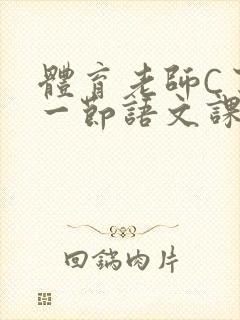 體育老師C
一節語文課
回鍋肉片